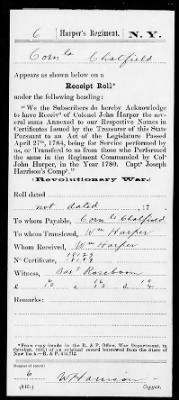 6 Harper's Regiment. N.Y.
Corn^ls Chatfield
Appears as shown below on a
Receipt Roll*
under the following heading:
"We the Subscribers do hereby Acknowledge
to have Receiv^d of Colonel John Harper the several
sums Annexed to our Respective Names in
Certificates Issued by the Treasurer of this State
Pursuant to an Act of the Legislature Passed
April 27^th, 1784, being for Service performed by
us, or Transfered to us from those who Performed
the same in the Regiment Commanded by Col^o
John Harper, in the Year 1780. Capt^n Joseph
Harrison's Comp^y."
(Revolutionary War.)
Roll dated
not dated, 17
To whom Payable, Corn^ls Chatfield
To whom Transferred, W^m Harper
Whom Received, W^m Harper
N^o Certificate,
Witness, Bas^t Roseboom
£ s. d.
Remarks:
*From copy made in the R. & P. Office, War Department, in
of an original record borrowed from the State of
New York.—R. & P.
6
W Harrison
Copyist.